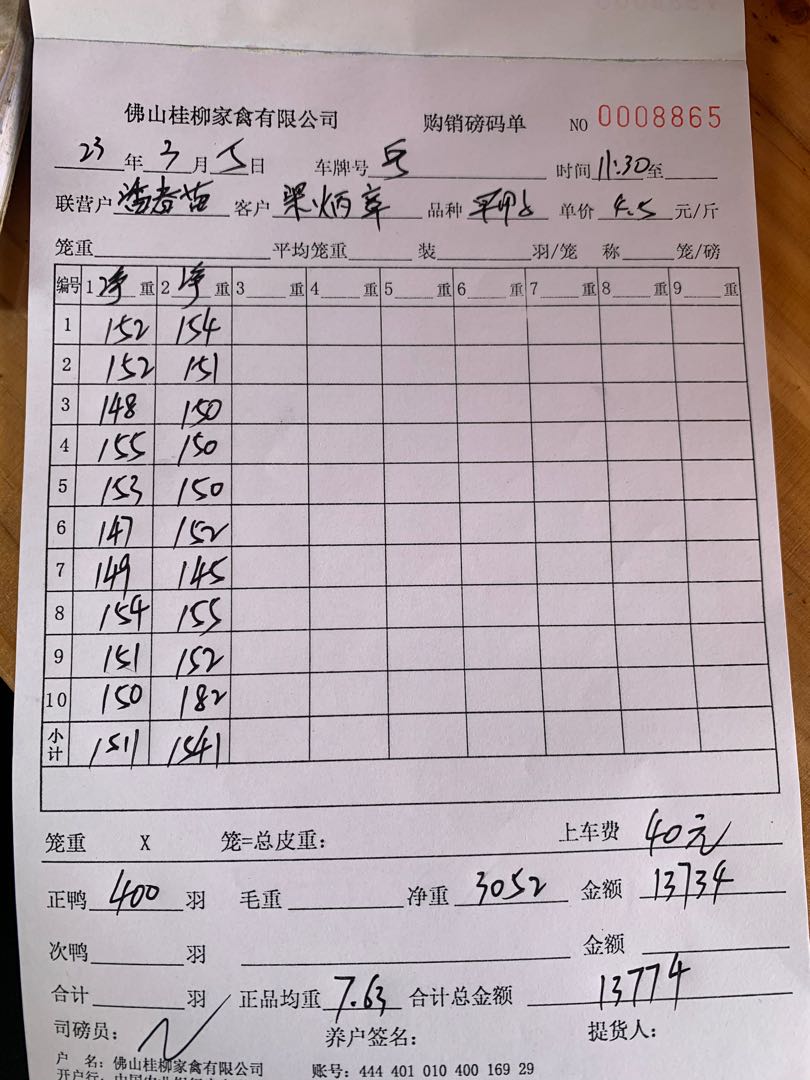 佛山桂柳家禽有限公司 购销磅码单 NO 0008865
23 年 3 月 5 日 车牌号 时间 11:30 至
联营户 客户 梁炳章 品种 单价 4.5 元/斤
笼重 平均笼重 装 羽/笼 称 笼/磅
编号 1 净 重 2 净 重 3 重 4 重 5 重 6 重 7 重 8 重 9 重
1 152 154
2 152 151
3 148 150
4 155 150
5 153 150
6 147 152
7 149 145
8 154 155
9 151 152
10 150 182
小计 1511 1541
笼重 X 笼=总皮重: 上车费 40元
正鸭 400 羽 毛重 净重 3052 金额 13734
次鸭 羽 金额
合计 羽 正品均重 7.63 合计总金额 13774
司磅员: 养户签名: 提货人:
户 名: 佛山桂柳家禽有限公司 账号: 444 401 010 400 169 29